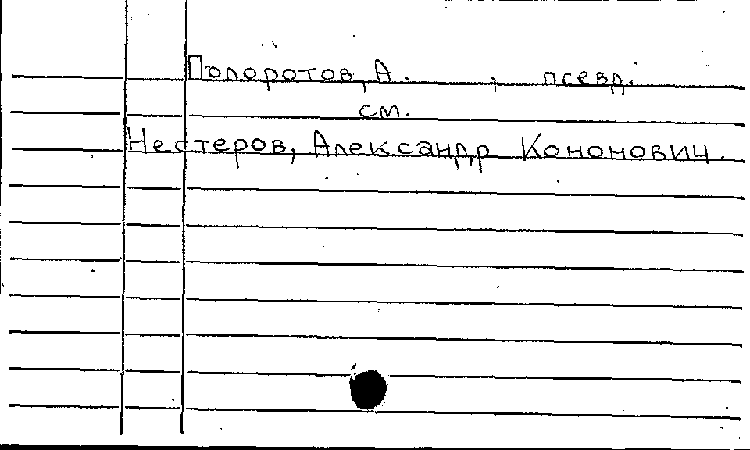 Полоротов, А. , псевд.
см.
Нестеров, Александр Кононович.